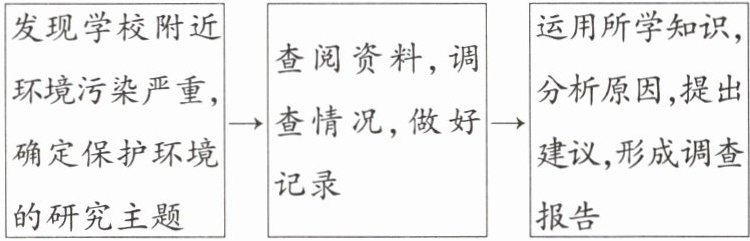 发现学校附近
环境污染严重,
确定保护环境
的研究主题
查阅资料,调
查情况,做好
记录
运用所学知识,
分析原因,提出
建议,形成调查
报告